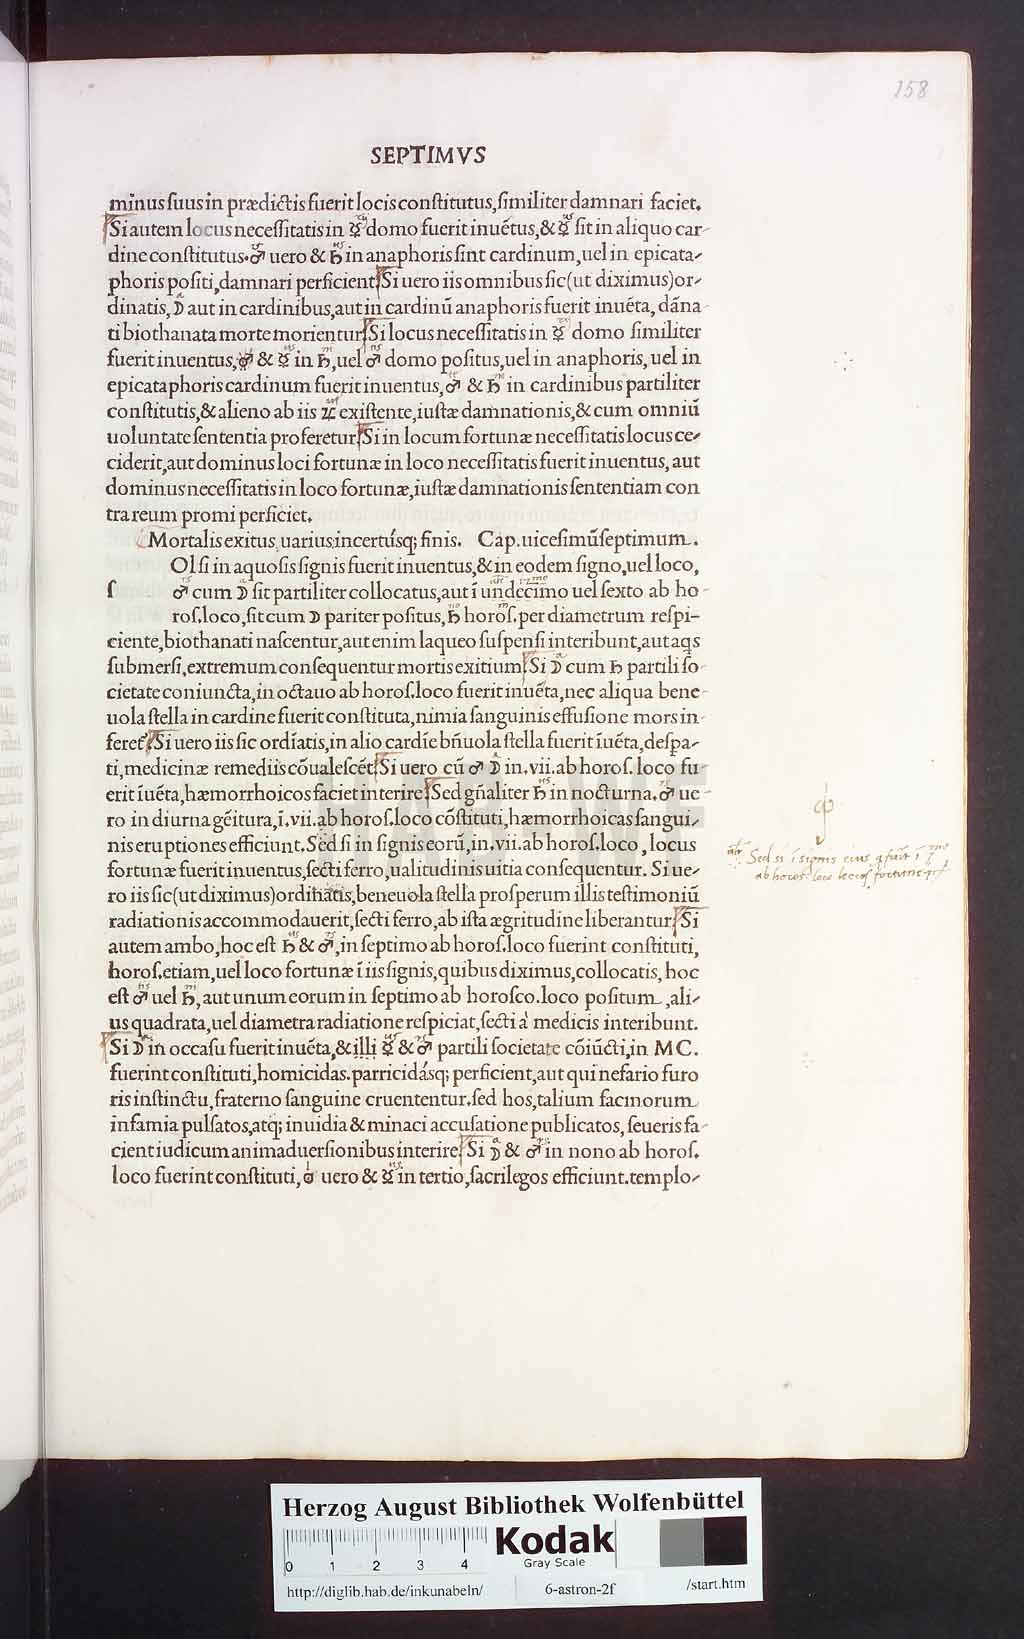 158
SEPTIMVS
minus suus in prædictis fuerit locis constitutus, similiter damnari faciet.
Si autem locus necessitatis in ☿ domo fuerit inuētus, & ☿ sit in aliquo car-
dine constitutus. ♂ uero & ♄ in anaphoris sint cardinum, uel in epicata-
phoris positi, damnari perficient. Si uero iis omnibus sic (ut diximus) or-
dinatis, ☽ aut in cardinibus, aut in cardinū anaphoris fuerit inuēta, dāna-
ti biothanata morte morientur. Si locus necessitatis in ☿ domo similiter
fuerit inuentus, & ☿ in ♄, uel ♂ domo positus, uel in anaphoris, uel in
epicataphoris cardinum fuerit inuentus, ♂ & ♄ in cardinibus partiliter
constitutis, & alieno ab iis ♃ existente, iustæ damnationis, & cum omniū
uoluntate sententia proferetur. Si in locum fortunæ necessitatis locus ce-
ciderit, aut dominus loci fortunæ in loco necessitatis fuerit inuentus, aut
dominus necessitatis in loco fortunæ, iustæ damnationis sententiam con
tra reum promi perficiet.
Mortalis exitus uarius: incertúsq; finis. Cap. uicesimū septimum.
Ol si in aquosis signis fuerit inuentus, & in eodem signo, uel loco,
s ♂ cum ☽ sit partiliter collocatus, aut ī undecimo uel sexto ab ho-
ros. loco, sit cum ☽ pariter positus, ♄ horos. per diametrum respi-
ciente, biothanati nascentur, aut enim laqueo suspensi interibunt, aut aqs
submersi, extremum consequentur mortis exitium. Si ☽ cum ♄ partili so-
cietate coniuncta, in octauo ab horos. loco fuerit inuēta, nec aliqua bene-
uola stella in cardine fuerit constituta, nimia sanguinis effusione mors in-
feret. Si uero iis sic ordīatis, in alio cardīe bn̄uola stella fuerit īuēta, despa-
ti, medicinæ remediis cōualescēt. Si uero cū ♂ ☽ in. vii. ab horos. loco fu-
erit īuēta, hæmorrhoicos faciet interire. Sed gn̄aliter ♄ in nocturna. ♂ ue-
ro in diurna gēitura, ī. vii. ab horos. loco cōstituti, hæmorrhoicas sangui-
nis eruptiones efficiunt. Sed si in signis eorū, in. vii. ab horos. loco, locus
fortunæ fuerit inuentus, secti ferro, ualitudinis uitia consequentur. Si ue-
ro iis sic (ut diximus) ordinatis, beneuola stella prosperum illis testimoniū
radiationis accommodauerit, secti ferro, ab ista ægritudine liberantur. Si
autem ambo, hoc est ♄ & ♂, in septimo ab horos. loco fuerint constituti,
horos. etiam, uel loco fortunæ ī iis signis, quibus diximus, collocatis, hoc
est ♂ uel ♄, aut unum eorum in septimo ab horosco. loco positum, ali-
us quadrata, uel diametra radiatione respiciat, secti à medicis interibunt.
Si ☽ in occasu fuerit inuēta, & illi ☿ & ♂ partili societate cōiūcti, in MC.
fuerint constituti, homicidas. parricidásq; perficient, aut qui nefario furo
ris instinctu, fraterno sanguine cruententur. sed hos, talium facinorum
infamia pulsatos, atq; inuidia & minaci accusatione publicatos, seueris fa-
cient iudicum animaduersionibus interire. Si ☽ & ♂ in nono ab horos.
loco fuerint constituti, ♂ uero & ☿ in tertio, sacrilegos efficiunt. templo-
Sed si ī signis eius
ab horos. loco fortune
HAB-WF
Herzog August Bibliothek Wolfenbüttel
0 1 2 3 4
Kodak
Gray Scale
http://diglib.hab.de/inkunabeln/ 6-astron-2f /start.htm